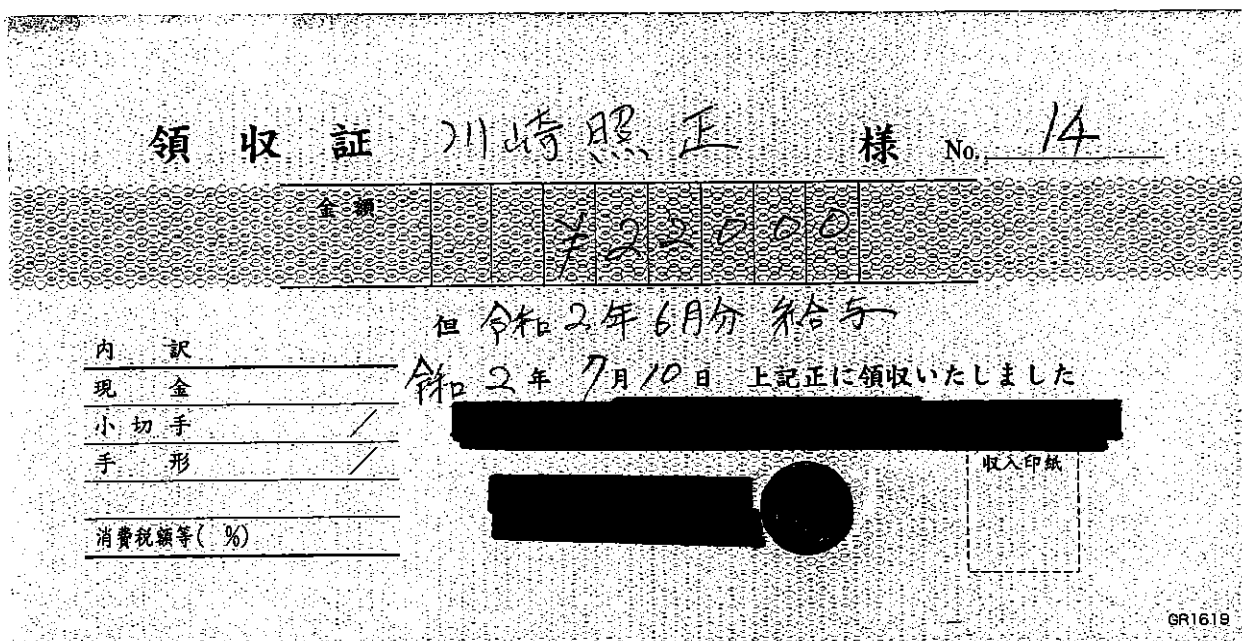 領収証 川崎照正 様 No. 14
金額 ¥22000
但 令和2年6月分 給与
内訳
令和2年7月10日 上記正に領収いたしました
現金
小切手 /
手形 /
収入印紙
消費税額等( %)
GR1619